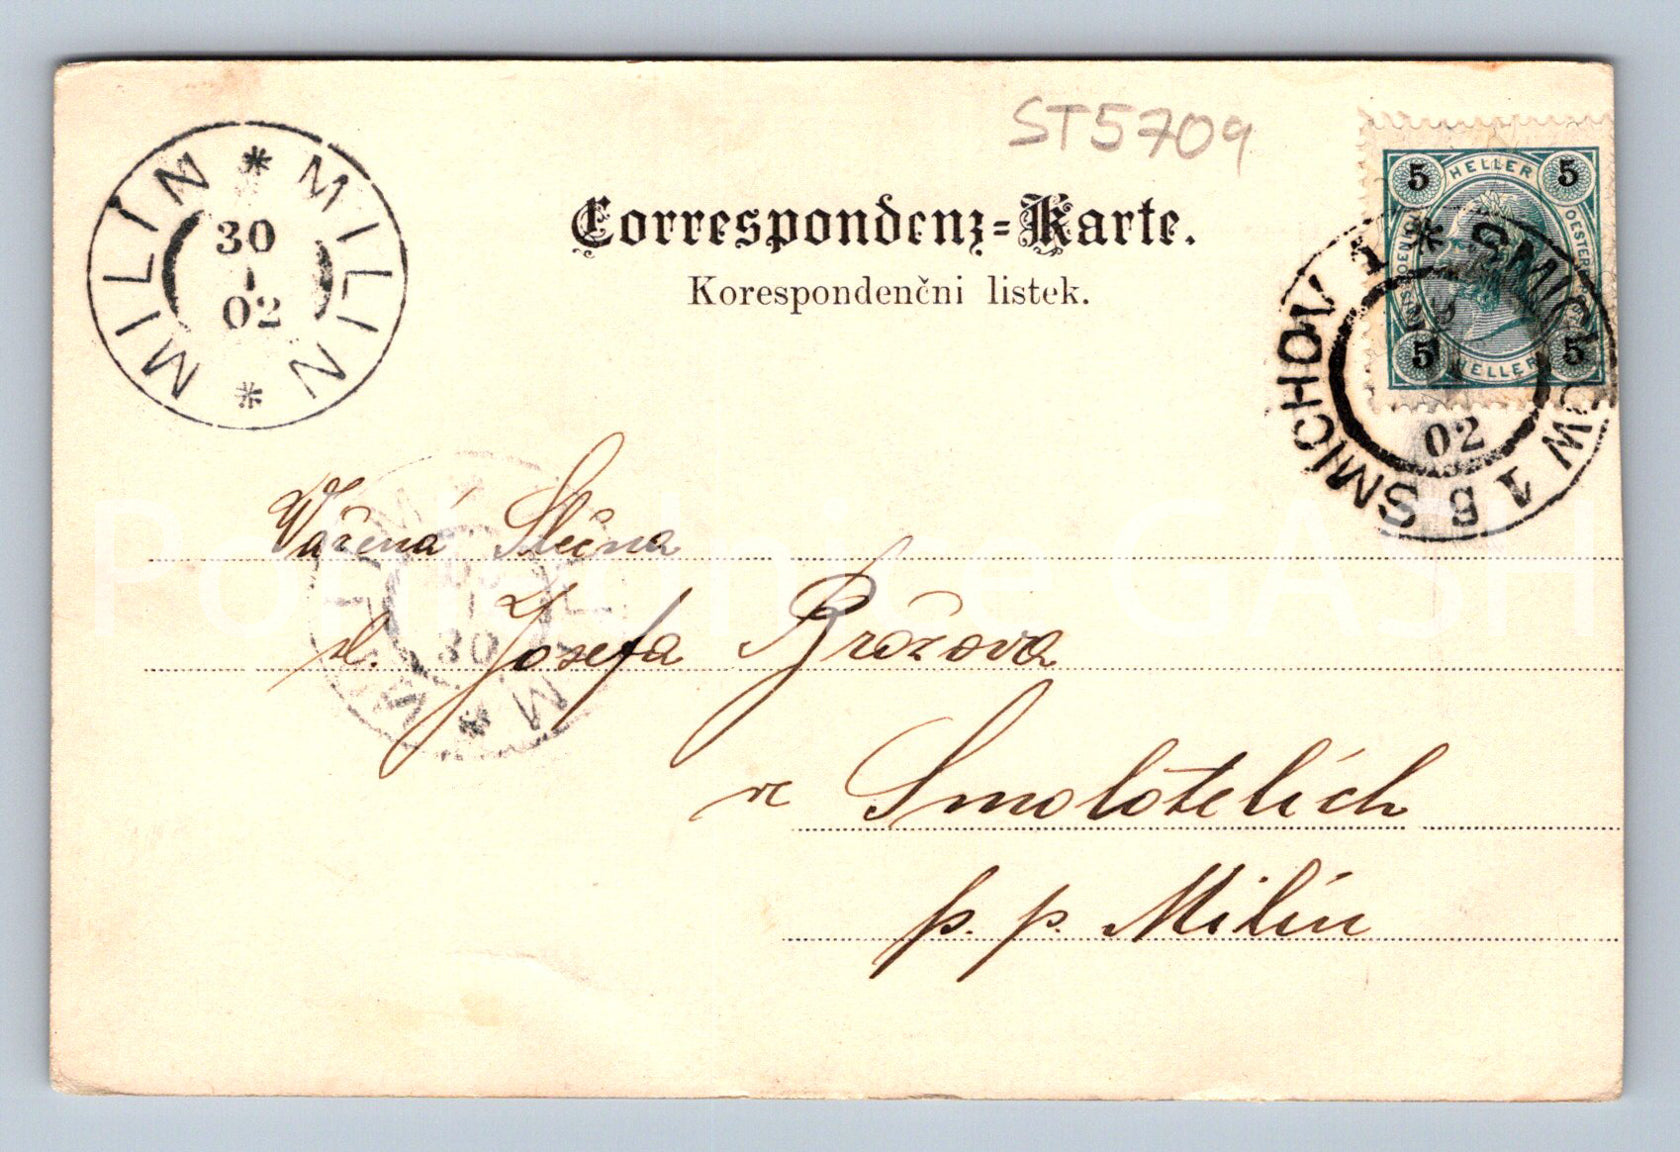 ST5709
Correspondenz=Karte.
Korespondenčni listek.
MILÍN * MILIN *
30
I
02
5 HELLER 5
5 HELLER 5
SMICHOW 1 B SMÍCHOV 1 *
02
Vážená Slečna
sl. Josefa Brožova
v Smolotelích
p. p. Milín
30
Pohlednice GASH